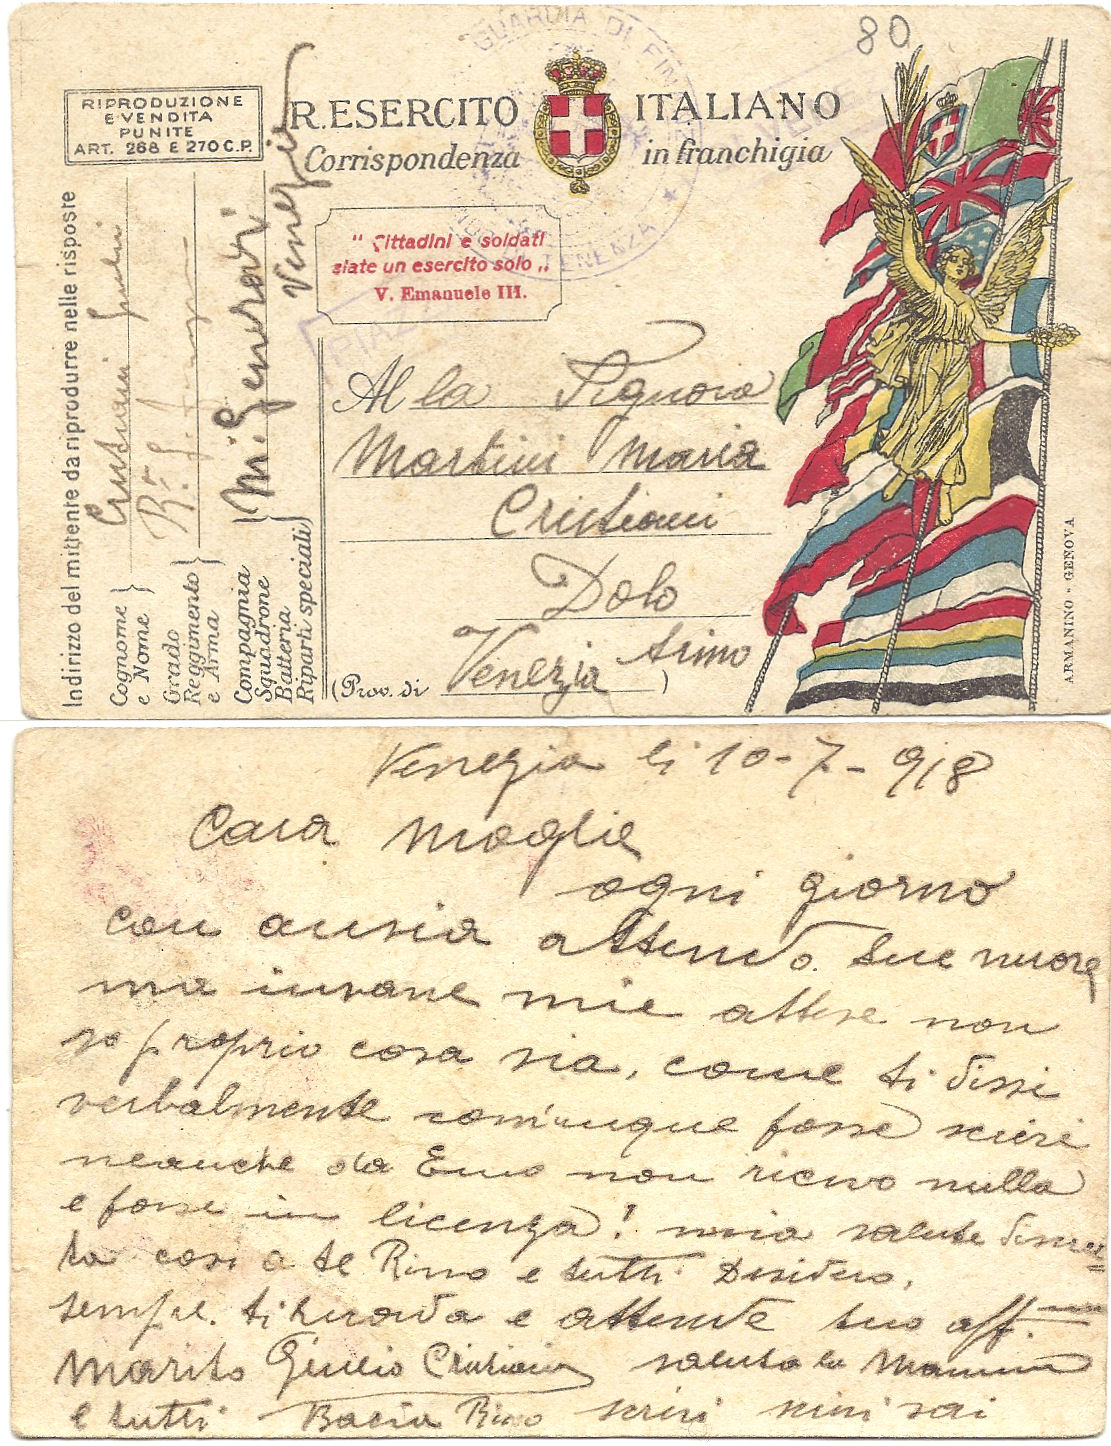 80
GUARDIA DI FIN
TENENZA
RIPRODUZIONE
E VENDITA
PUNITE
ART. 268 E 270 C.P.
R. ESERCITO ITALIANO
Corrispondenza in franchigia
" Cittadini e soldati
siate un esercito solo „
V. Emanuele III.
Indirizzo del mittente da riprodurre nelle risposte
Cognome
e Nome
Grado
Reggimento
e Arma
Compagnia
Squadrone
Batteria
Riparti speciali
Venezia
Alla Signora
Martini Maria
Cristiani
Dolo
Arino
(Prov. di Venezia)
ARMANINO - GENOVA
Venezia li 10-7-918
Cara Moglie
ogni giorno
con ansia attendo tue nuove
ma invane mie attese non
so proprio cosa sia, come ti dissi
verbalmente comunque fosse scrivi
neanche da Emo non ricevo nulla
e forse in licenza! mia salute
ta così a te Rino e tutti Desidero,
sempre ti ricorda e attende tuo aff.
Marito Giulio Cristiani saluta la Mamma
e tutti Bacia Rino scrivi